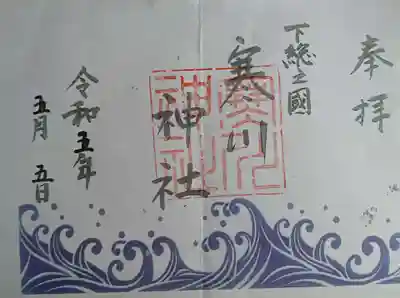 奉拝
下総之國
寒川
神社
令和五年
五月五日